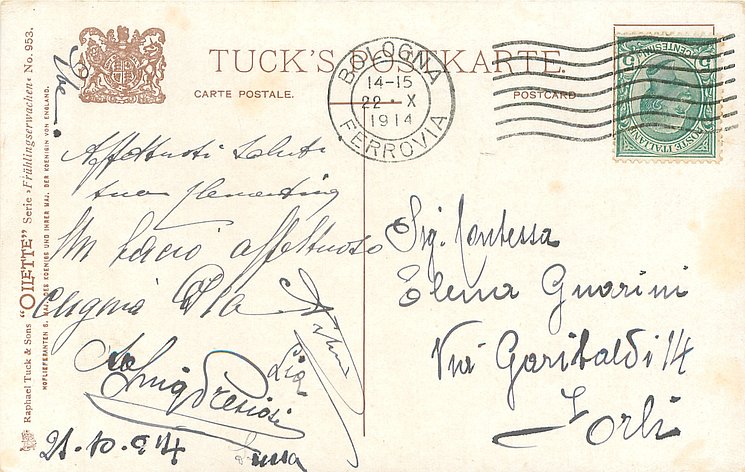 TUCK'S POSTKARTE.
CARTE POSTALE.
POSTCARD
BOLOGNA
14-15
22 · X
1914
FERROVIA
POSTE ITALIANE
CENTESIMI
5 5
Raphael Tuck & Sons "OILETTE" Serie »Frühlingserwachen« No. 953.
HOFLIEFERANTEN S. MAJ. DES KOENIGS UND IHRER MAJ. DER KOENIGIN VON ENGLAND.
Affettuosi saluti
tua Clementina
Un bacio affettuoso
Lia
21-10-914
Sig. Contessa
Elena Guarini
Via Garibaldi 14
Forlì